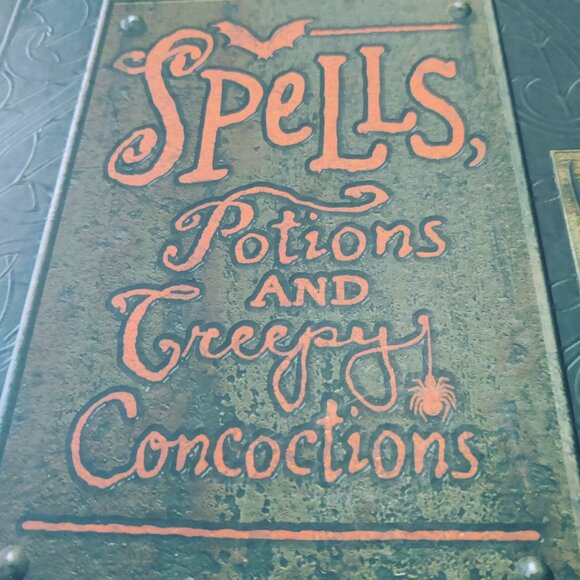 Spells,
Potions
AND
Creepy
Concoctions